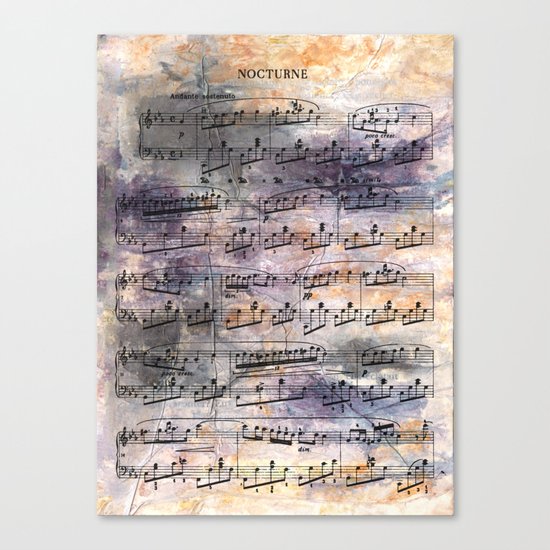 NOCTURNE
Andante sostenuto
p
poco cresc.
simile
dim.
pp
poco cresc.
p
dim.